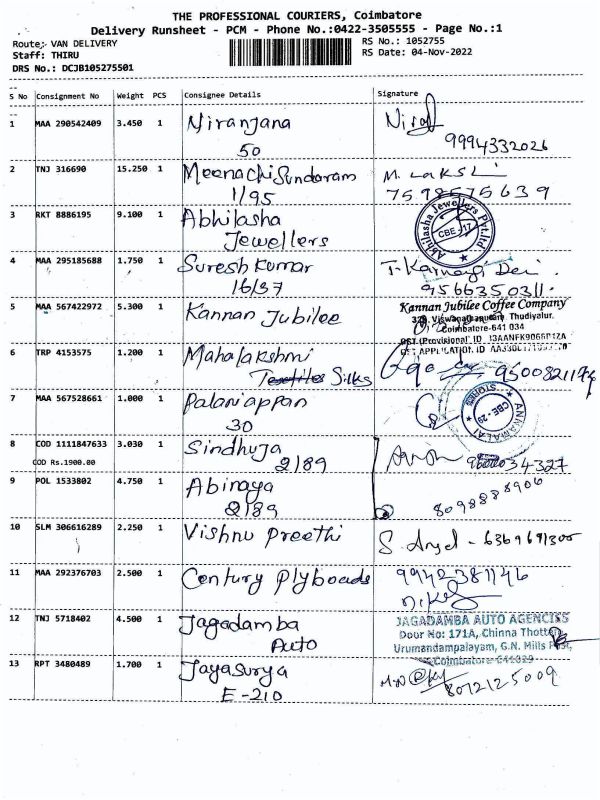 THE PROFESSIONAL COURIERS, Coimbatore
Delivery Runsheet - PCM - Phone No.:0422-3505555 - Page No.:1
Route: VAN DELIVERY RS No.: 1052755
Staff: THIRU RS Date: 04-Nov-2022
DRS No.: DCJB105275501
S No Consignment No Weight PCS Consignee Details Signature
1 MAA 290542409 3.450 1 Niranjana
50 9994332026
2 TNJ 316690 15.250 1 Meenachi Sundaram M. Lakshi
1/95 7598575639
3 RKT 8886195 9.100 1 Abhilasha
Jewellers
Abhilasha Jewellers Pvt.Ltd.
CBE-17
4 MAA 295185688 1.750 1 Suresh Kumar
16/37 9566350311.
5 MAA 567422972 5.300 1 Kannan Jubilee
Kannan Jubilee Coffee Company
Thudiyalur.
Coimbatore-641 034
6 TRP 4153575 1.200 1 Mahalakshmi
Silks
7 MAA 567528661 1.000 1 Palaniappan
30
STORES
CBE-29
8 COD 1111847633 3.030 1 Sindhuja
COD Rs.1900.00 2/89
9 POL 1533802 4.750 1 Abinaya
2/89 8098888906
10 SLM 306616289 2.250 1 Vishnu Preethi
11 MAA 292376703 2.500 1 Century Plyboads 99942381146
12 TNJ 5718402 4.500 1 Jagadamba
Auto
JAGADAMBA AUTO AGENCIES
Door No: 171A, Chinna Thottam
Urumandampalayam, G.N. Mills Post,
Coimbatore-641029
13 RPT 3480489 1.700 1 Jayasurya
E-210 8072125009